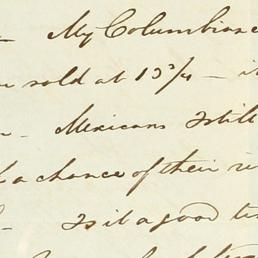 – My Columbians
sold at 13 3/4 –
– Mexicans I still
a chance of their
– Is it a good